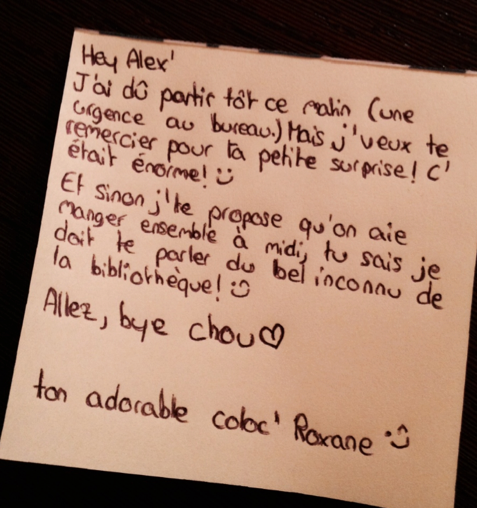 Hey Alex'
J'ai dû partir tôt ce matin (une
urgence au bureau.) Mais j'veux te
remercier pour ta petite surprise! C'
était énorme! :)
Et sinon j'te propose qu'on aie
manger ensemble à midi, tu sais je
doit te parler du bel inconnu de
la bibliothèque! :)
Allez, bye chou ♡
ton adorable coloc' Roxane :)